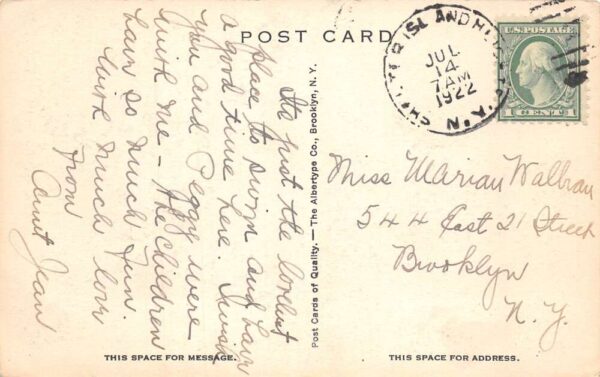 POST CARD
SHELTER ISLAND HEIGHTS N.Y.
JUL
14
7 AM
1922
U.S. POSTAGE
1 CENT 1
Its just the loveliest
place to swim and have
a good time here. I wish
you and Peggy were
with me - The children
have so much fun.
With much love
from
Aunt Jean
Post Cards of Quality. — The Albertype Co., Brooklyn, N. Y.
Miss Marian Walbran
544 East 21 Street
Brooklyn
N. Y.
THIS SPACE FOR MESSAGE.
THIS SPACE FOR ADDRESS.